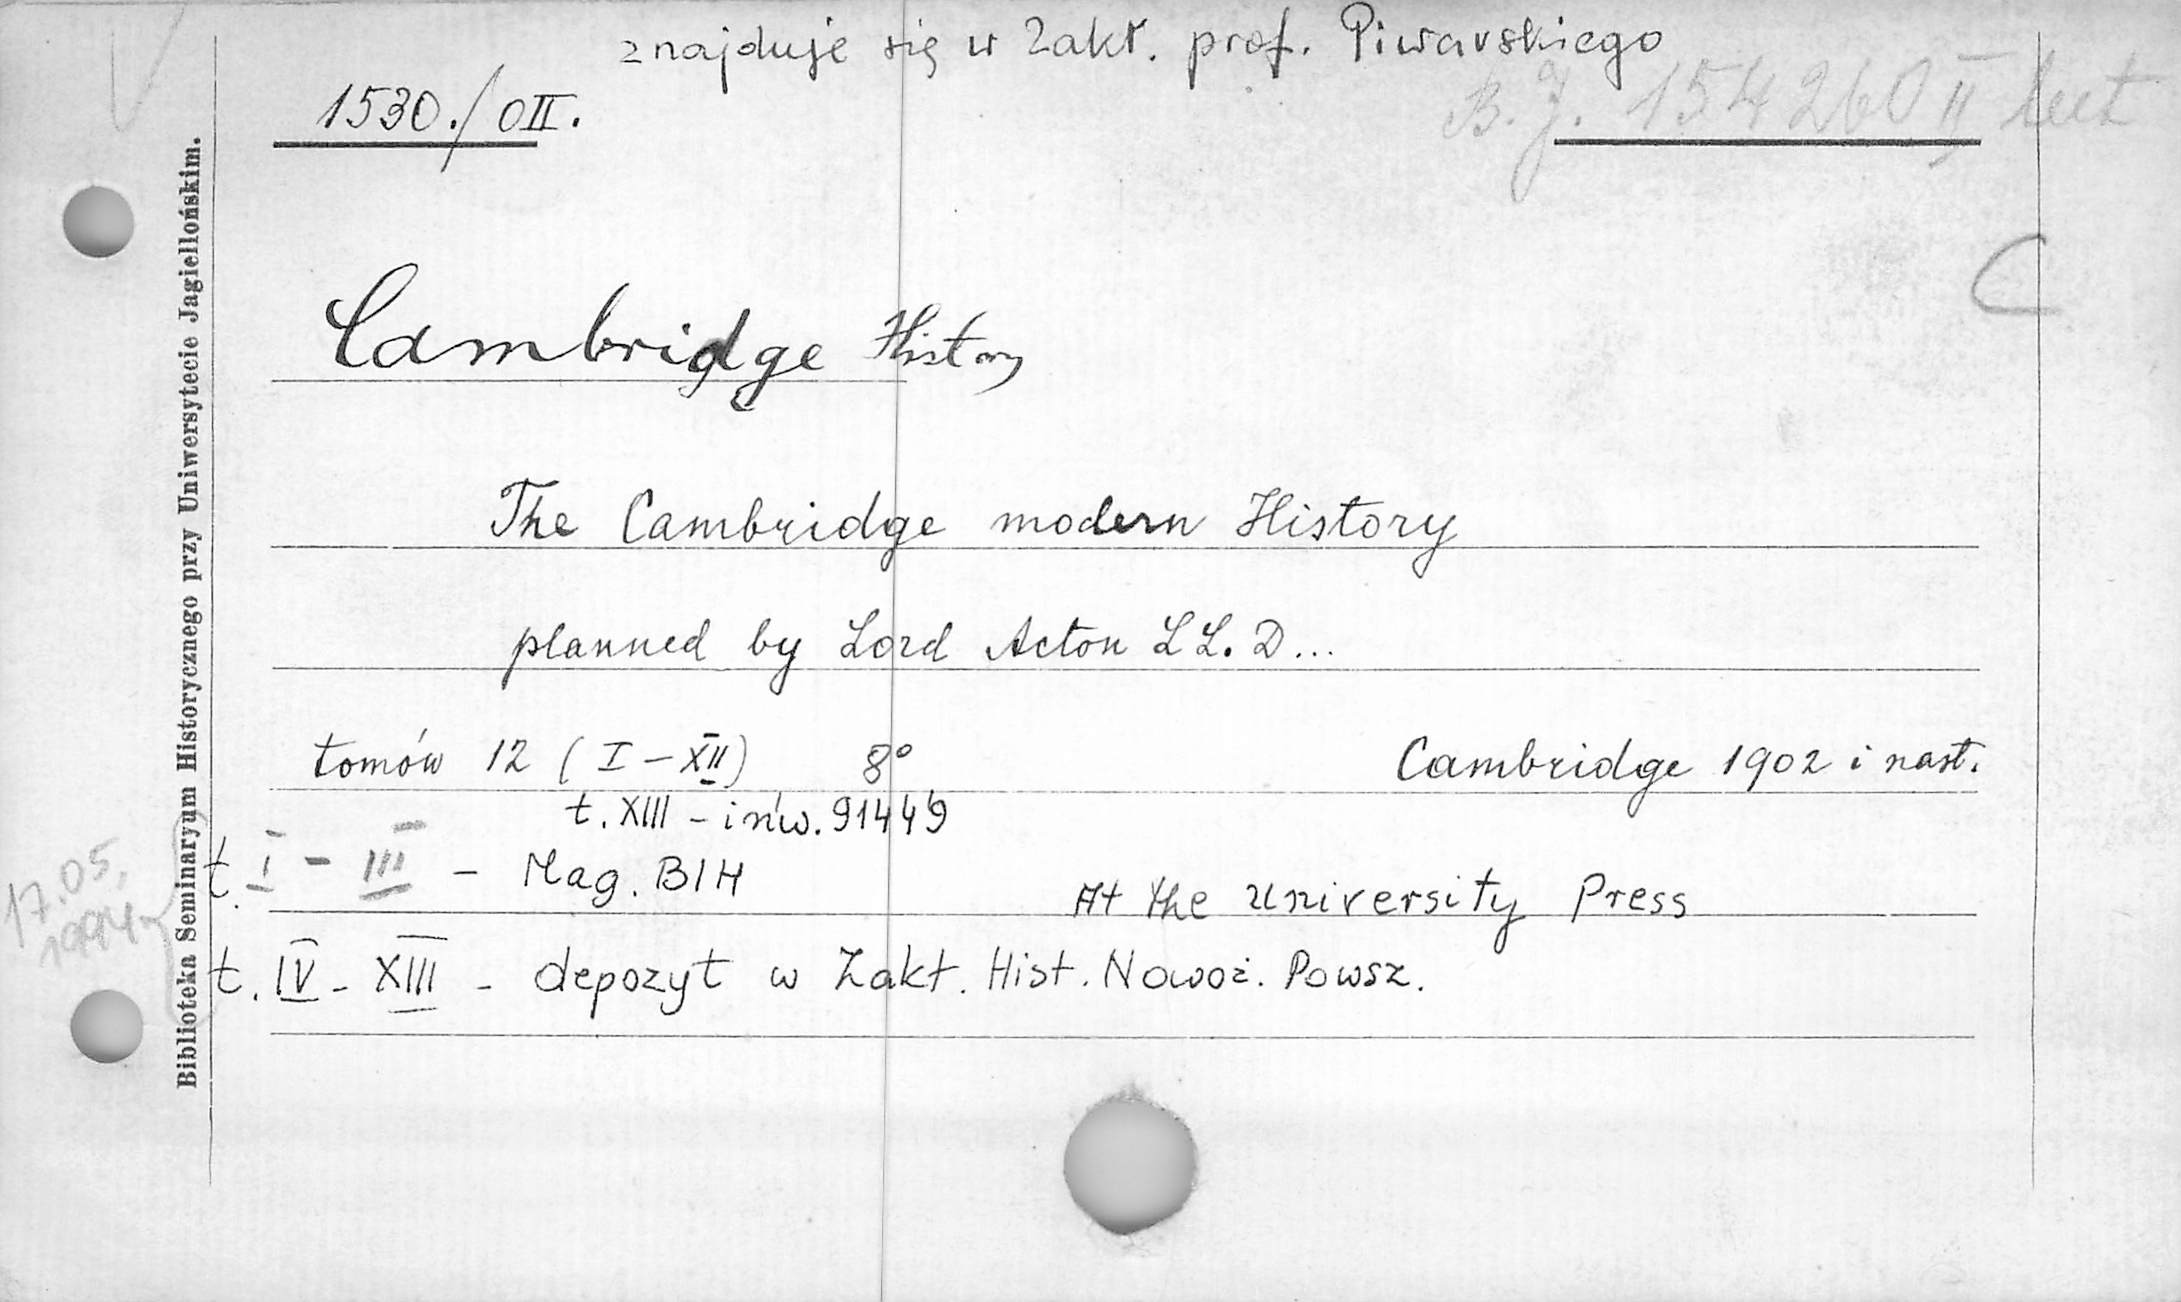 znajduje się w Zakł. prof. Piwarskiego
1530./OII.
B. J. 154260 II
C
Cambridge History
The Cambridge modern History
planned by Lord Acton LL. D...
tomów 12 (I – XII) 8° Cambridge 1902 i nast.
t. XIII – inw. 91449
t. I – III – Mag. BIH
At the University Press
t. IV – XIII – depozyt w Zakł. Hist. Nowoż. Powsz.
17.05.
1994
Biblioteka Seminaryum Historycznego przy Uniwersytecie Jagiellońskim.